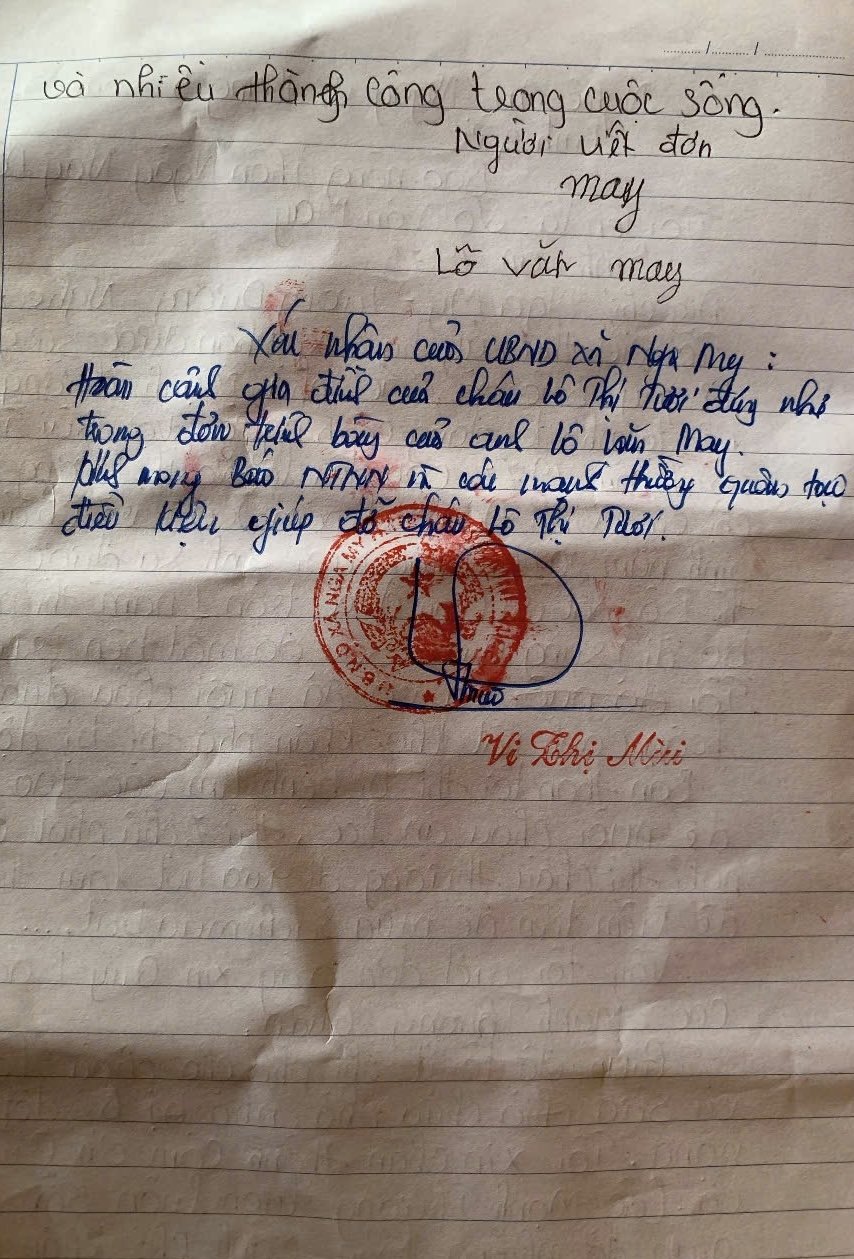 và nhiều thành công trong cuộc sống.
Người viết đơn
May
Lô văn may
Xác nhận của UBND xã Nga My :
Hoàn cảnh gia đình của cháu Lô Thị Tươi đúng như
trong đơn trình bày của anh Lô Văn May.
Kính mong Báo NTNN và các mạnh thường quân tạo
điều kiện giúp đỡ cháu Lô Thị Tươi.
U.B.N.D XÃ NGA MY
Vi Thị Mùi